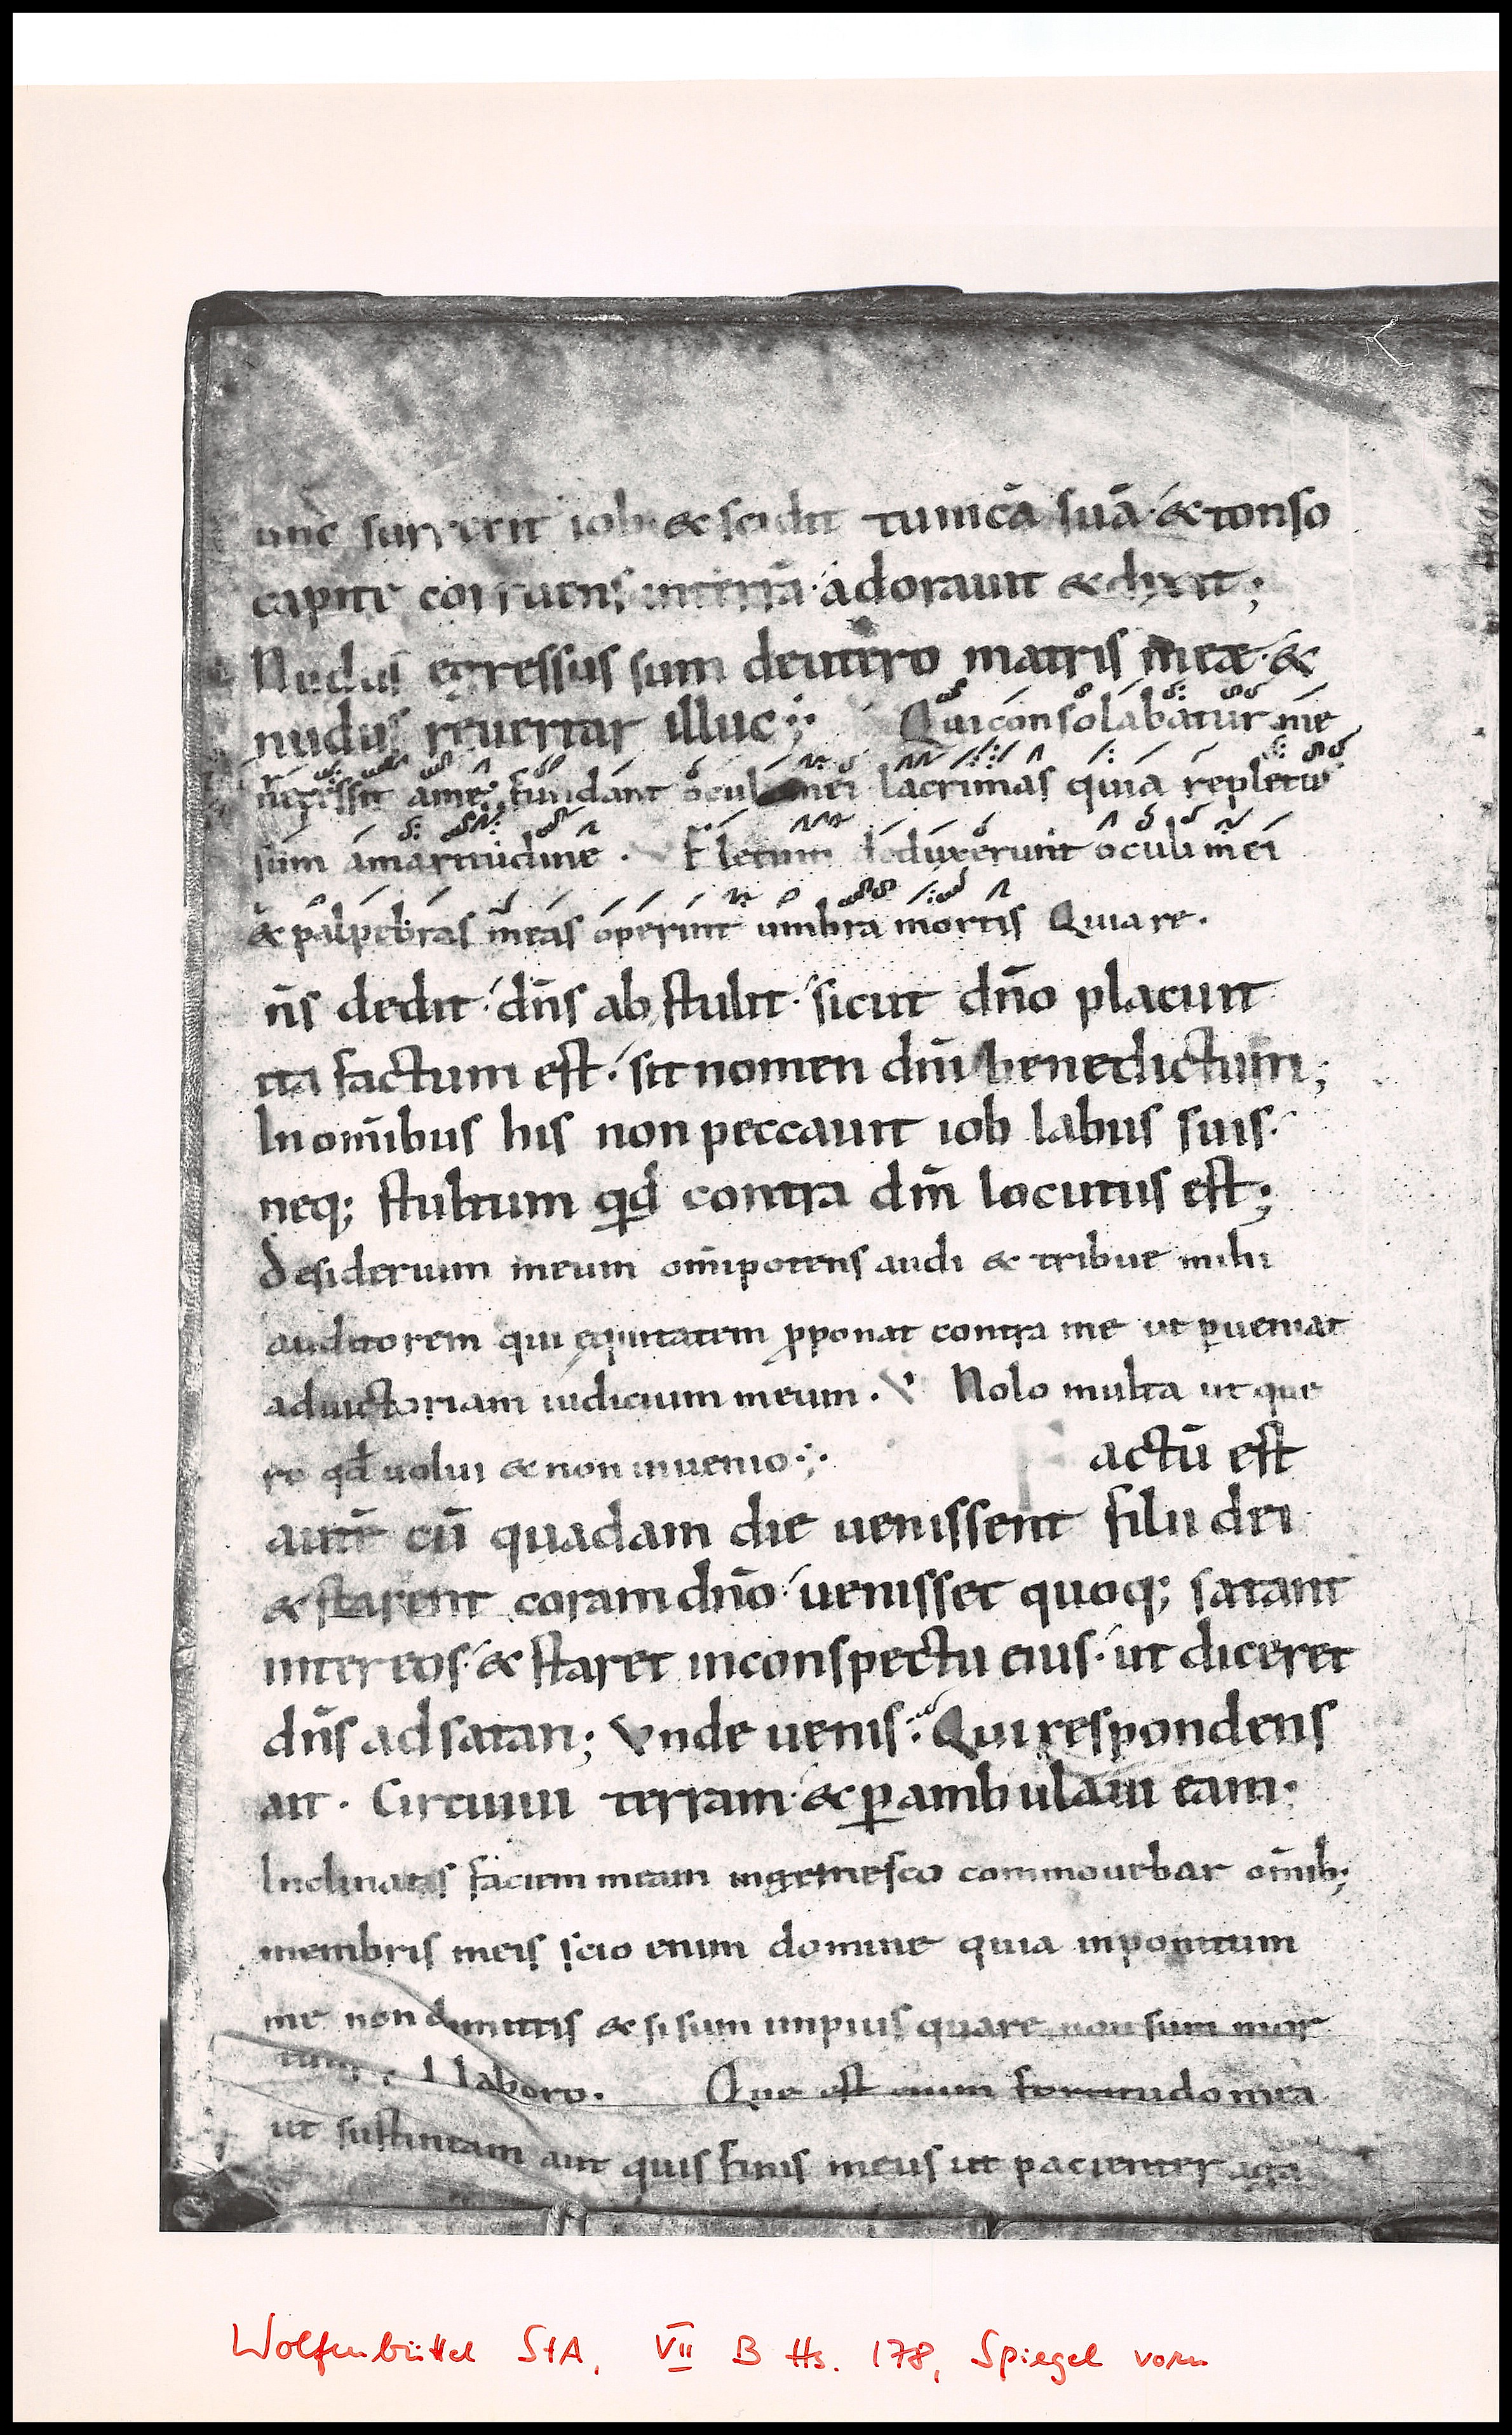 unc surrexit iob & scidit tunicā suā & tonso
capite corruens in terrā adorauit & dixit;
Nudus egressus sum deutero matris meæ &
nudus reuertar illuc; Qui consolabatur me
recessit a me fundant oculi mei lacrimas quia repletus
sum amaritudine . V Fletum deduxerunt oculi mei
& palpebras meas operiunt umbra mortis Quia re.
n̄s dedit dn̄s abstulit sicut dn̄o placuit
ita factum est sit nomen dn̄i benedictum;
In om̄ibus his non peccauit iob labiis suis
neq; stultum qđ contra dm̄ locutus est;
Desiderium meum om̄ipotens audi & tribue mihi
auditorem qui equitatem p̄ponat contra me ut ꝑueniat
aduictoriam iudicium meum . V Nolo multa ut que
ro qđ uolui & non inuenio
Factū est
autē cū quadam die uenissent filii dei
& starent coram dn̄o uenisset quoq; satan
inter eos & staret inconspectu eius ut diceret
dn̄s ad satan; Vnde uenis Qui respondens
ait . Circuiui terram & ꝑambulaui eam
Inclinans faciem meam ingemesco commouebar om̄ib;
membris meis scio enim domine quia inpunitum
me non dimittis & si sum impius quare non sum mor
tuus laboro. Que est enim fortitudo mea
ut sustineam aut quis finis meus ut pacienter agā
Wolfenbüttel StA, VII B Hs. 178, Spiegel vorn